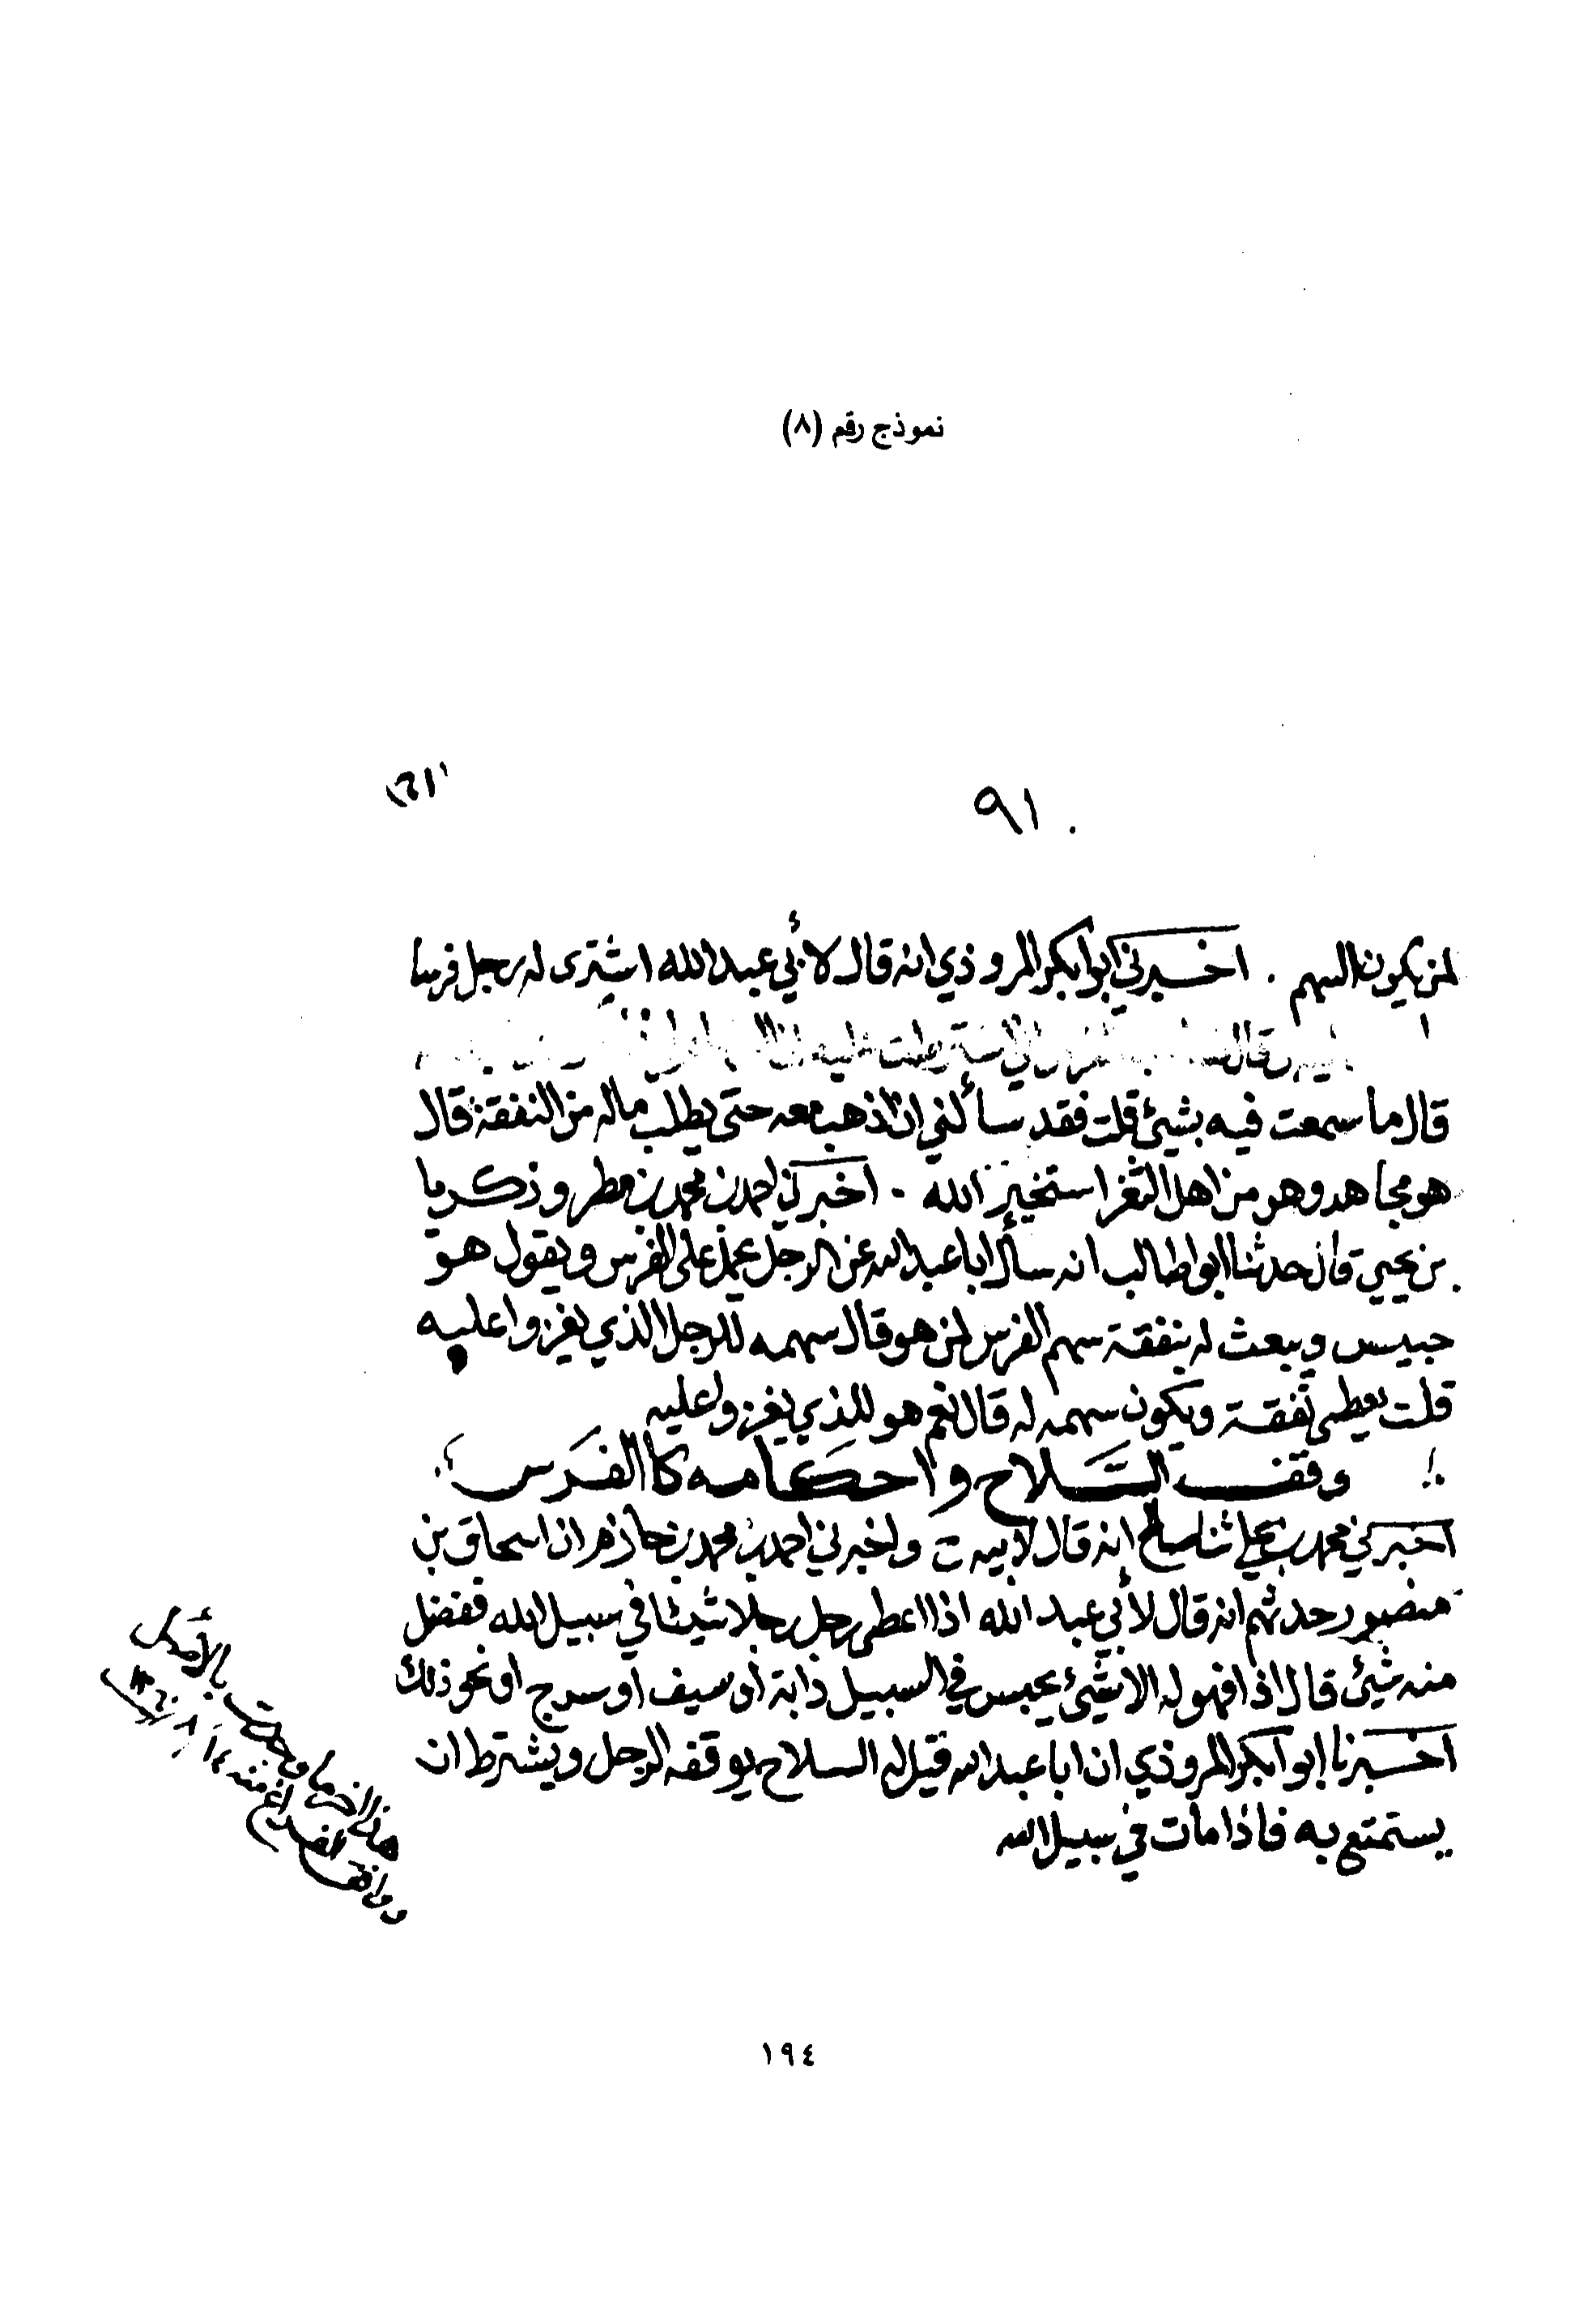 نموذج رقم (٨)
٩١
لمن يكون السهم . اخبرني ابوا بكر المروذي انه قال لأبي عبد الله اشترى له رجل فرسا
قال ما سمعت فيه بشيئ قلت فقد سألني ان اذهب معه حتى يطلب ماله من النفقة قال
هو مجاهد وهو من اهل الثغر استخير الله . اخبرني احمد بن محمد بن مطر وذكريا
بن يحيى قال حدثنا ابوا طالب انه سأل ابا عبد الله عن الرجل على الفرس ويقول هو
حبيس ويبعث له بنفقة سهم الفرس لمن هو قال سهمه للرجل الذي يغزوا عليه
قلت يعطى نفقة ويكون سهمه له قال نعم هو للذي يغزوا عليه
وقف السَّلاح واحكامه كا الفَرَس
اخبرني محمد بن علي ثنا صالح انه قال لابيه ت واخبرني احمد بن محمد بن حازم ان اسحاق بن
منصور حدثهم انه قال لأبي عبد الله اذا اعطى رجل رجلا شيئا في سبيل الله ففضل
منه شيئ قال اذا فهو له الا شيئ يحبس في السبيل دابة او سيف او سرج او نحو ذلك
اخبرنا ابوا بكر المروذي ان ابا عبد الله قيل له السلاح يوقفه الرجل ويشترط ان
يستمتع به فاذا مات في سبيل الله
١٩٤